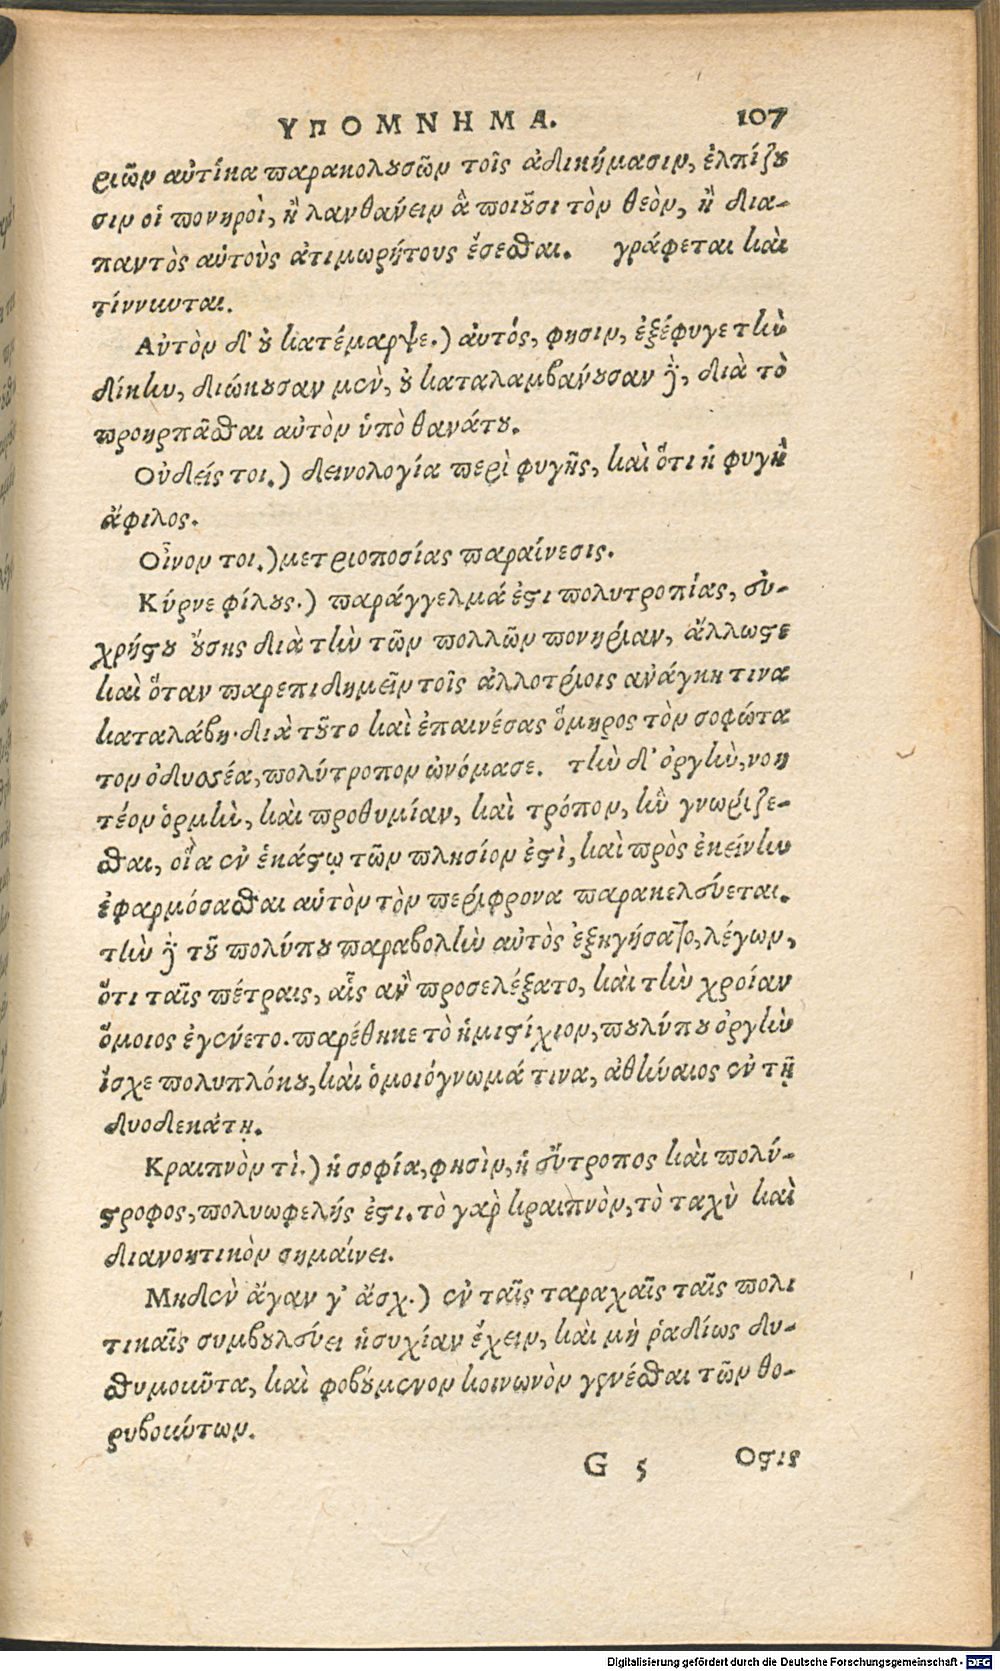 ΥΠΟΜΝΗΜΑ. 107
ριῶν αὐτίκα παρακολουσῶν τοῖς ἀδικήμασιν, ἐλπίζου
σιν οἱ πονηροὶ, ἢ λανθάνειν ἃ ποιοῦσι τὸν θεὸν, ἢ δια-
παντὸς αὐτοὺς ἀτιμωρήτους ἔσεσθαι. γράφεται καὶ
τίννυνται.
Αὐτὸν δ' οὐ κατέμαρψε.) αὐτός, φησιν, ἐξέφυγε τὴν
δίκην, διώκουσαν μὲν, οὐ καταλαμβανόυσαν δὲ, διὰ τὸ
προηρπᾶσθαι αὐτὸν ὑπὸ θανάτου.
Οὐδείς τοι.) δεινολογία περὶ φυγῆς, καὶ ὅτι ἡ φυγὴ
ἄφιλος.
Οἶνον τοι.) μετριοποσίας παραίνεσις.
Κύρνε φίλους.) παράγγελμά ἐστι πολυτροπίας, εὐ-
χρήστου οὔσης διὰ τὴν τῶν πολλῶν πονηρίαν, ἄλλωστε
καὶ ὅταν παρεπιδημεῖν τοῖς ἀλλοτρίοις ανάγκη τινα
καταλάβη. διὰ τοῦτο καὶ ἐπαινέσας ὅμηρος τὸν σοφώτα
τον ὀδυσσέα, πολύτροπον ὠνόμασε. τὴν δ' ὀργὴν, νοη
τέον ὁρμὴν, καὶ προθυμίαν, καὶ τρόπον, ἣν γνωρίζε-
σθαι, οἵα ἐν ἑκάστῳ τῶν πλησίον ἐστὶ, καὶ πρὸς ἐκείνην
ἐφαρμόσασθαι αὑτὸν τὸν περίφρονα παρακελεύεται.
τὴν δὲ τοῦ πολύπου παραβολὴν αὐτὸς ἐξηγήσατο, λέγων,
ὅτι ταῖς πέτραις, αἷς ἂν προσελέξατο, καὶ τὴν χροίαν
ὅμοιος ἐγένετο. παρέθηκε τὸ ἡμιστίχιον, πουλύπου ὀργὴν
ἴσχε πολυπλόκου, καὶ ὁμοιόγνωμά τινα, ἀθήναιος ἐν τῇ
δυοδεκάτῃ.
Κραιπνὸν τὶ.) ἡ σοφία, φησὶν, ἡ εὔτροπος καὶ πολύ-
στροφος, πολυωφελής ἐστι. τὸ γὰρ κραιπνὸν, τὸ ταχὺ καὶ
διανοητικὸν σημαίνει.
Μηδὲν ἄγαν γ' ἄσχ.) ἐν ταῖς ταραχαῖς ταῖς πολι
τικαῖς συμβουλεύει ἡσυχίαν ἔχειν, καὶ μὴ ῥαδίως δυ-
σθυμοῦντα, καὶ φοβούμενον κοινωνὸν γενέσθαι τῶν θο-
ρυβούντων.
G 5 Οστις